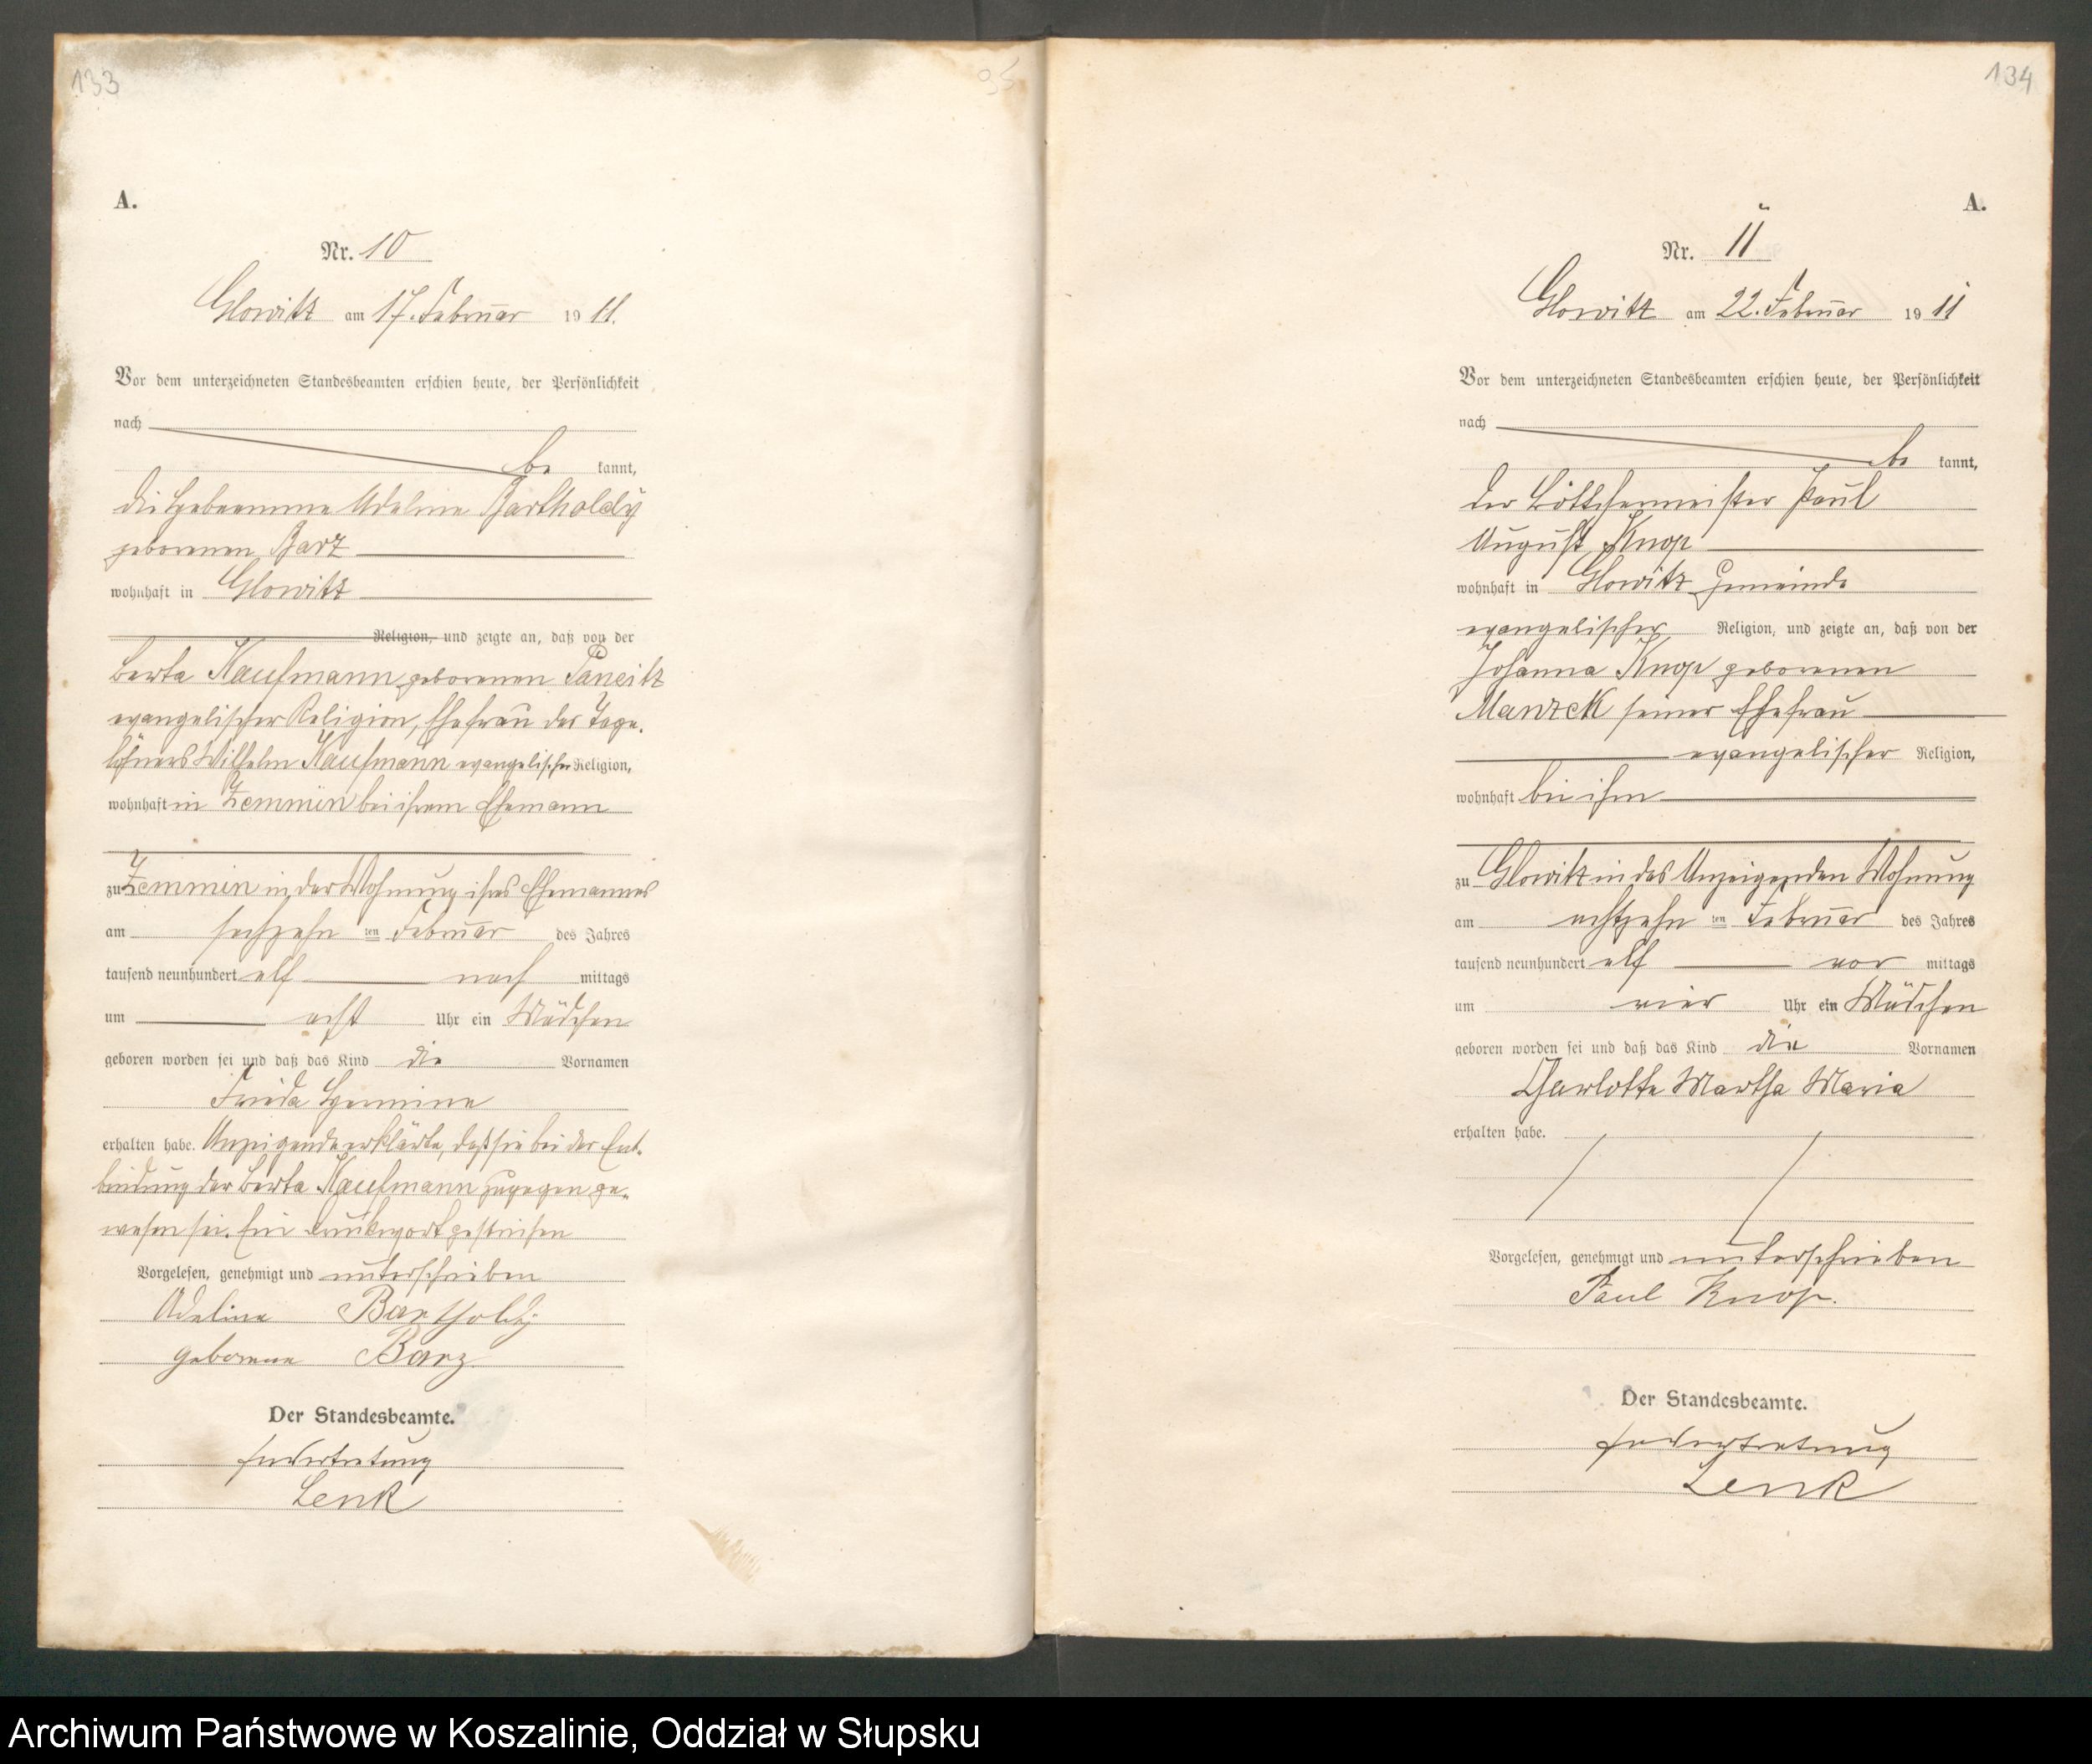 133
95
A.
Nr. 10
Glowitz am 17. Februar 1911.
Vor dem unterzeichneten Standesbeamten erschien heute, der Persönlichkeit
nach
be kannt,
die Hebeamme Adeline Bartholdy
geborenen Barz
wohnhaft in Glowitz
Religion, und zeigte an, daß von der
Berta Kaufmann geborenen
evangelischer Religion, Ehefrau des Tage-
löhners Wilhelm Kaufmann evangelischer Religion,
wohnhaft in Zemmin bei ihrem Ehemann
zu Zemmin in der Wohnung ihres Ehemannes
am sechzehn ten Februar des Jahres
tausend neunhundert elf nach mittags
um acht Uhr ein Mädchen
geboren worden sei und daß das Kind die Vornamen
Frieda Hermine
erhalten habe. Anzeigende erklärte, daß sie bei der Ent-
bindung der Berta Kaufmann zugegen ge-
wesen sei. Ein Druckwort gestrichen
Vorgelesen, genehmigt und unterschrieben
Adeline Bartholdy
geborene Barz
Der Standesbeamte.
In Vertretung
Lenk
134
A.
Nr. 11
Glowitz am 22. Februar 1911
Vor dem unterzeichneten Standesbeamten erschien heute, der Persönlichkeit
nach
be kannt,
der Böttchermeister Paul
August Knop
wohnhaft in Glowitz Gemeinde
evangelischer Religion, und zeigte an, daß von der
Johanna Knop geborenen
Manzek seiner Ehefrau
evangelischer Religion,
wohnhaft bei ihm
zu Glowitz in des Anzeigenden Wohnung
am achtzehn ten Februar des Jahres
tausend neunhundert elf vor mittags
um vier Uhr ein Mädchen
geboren worden sei und daß das Kind die Vornamen
Charlotte Martha Maria
erhalten habe.
Vorgelesen, genehmigt und unterschrieben
Paul Knop.
Der Standesbeamte.
In Vertretung
Lenk
Archiwum Państwowe w Koszalinie, Oddział w Słupsku